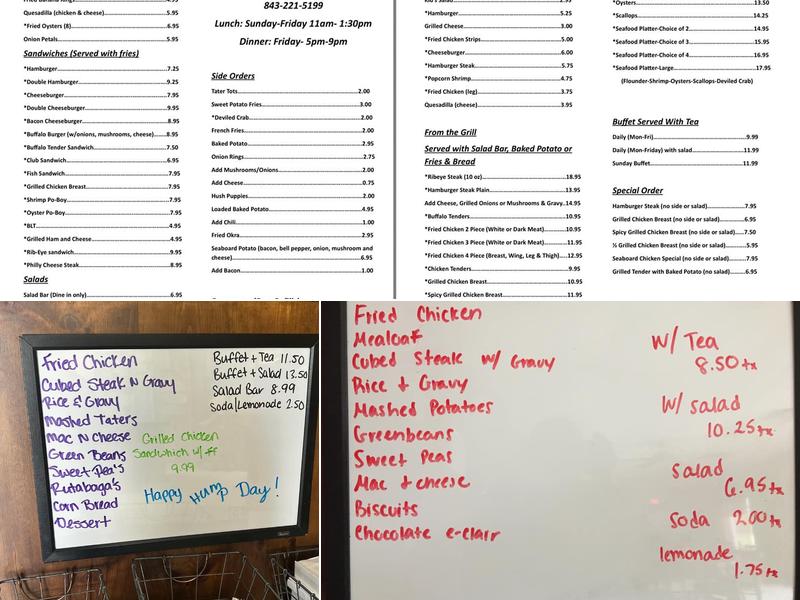 Quesadilla (chicken & cheese)....5.95
*Fried Oysters (8)....6.95
Onion Petals....5.95
Sandwiches (Served with fries)
*Hamburger....7.25
*Double Hamburger....9.25
*Cheeseburger....7.95
*Double Cheeseburger....9.95
*Bacon Cheeseburger....8.95
*Buffalo Burger (w/onions, mushrooms, cheese)....8.95
*Buffalo Tender Sandwich....7.50
*Club Sandwich....6.95
*Fish Sandwich....7.95
*Grilled Chicken Breast....7.95
*Shrimp Po-Boy....7.95
*Oyster Po-Boy....7.95
*BLT....4.95
*Grilled Ham and Cheese....4.95
*Rib-Eye sandwich....9.95
*Philly Cheese Steak....8.95
Salads
Salad Bar (Dine in only)....6.95
843-221-5199
Lunch: Sunday-Friday 11am- 1:30pm
Dinner: Friday- 5pm-9pm
Side Orders
Tater Tots....2.00
Sweet Potato Fries....3.00
*Deviled Crab....2.00
French Fries....2.00
Baked Potato....2.95
Onion Rings....2.75
Add Mushrooms/Onions....2.00
Add Cheese....0.75
Hush Puppies....2.00
Loaded Baked Potato....4.95
Add Chili....1.00
Fried Okra....2.95
Seaboard Potato (bacon, bell pepper, onion, mushroom and
cheese)....6.95
Add Bacon....1.00
*Hamburger....5.25
Grilled Cheese....3.00
*Fried Chicken Strips....5.00
*Cheeseburger....6.00
*Hamburger Steak....5.75
*Popcorn Shrimp....4.75
*Fried Chicken (leg)....3.75
Quesadilla (cheese)....3.95
From the Grill
Served with Salad Bar, Baked Potato or
Fries & Bread
*Ribeye Steak (10 oz)....18.95
*Hamburger Steak Plain....13.95
Add Cheese, Grilled Onions or Mushrooms & Gravy..14.95
*Buffalo Tenders....10.95
*Fried Chicken 2 Piece (White or Dark Meat)....10.95
*Fried Chicken 3 Piece (White or Dark Meat)....11.95
*Fried Chicken 4 Piece (Breast, Wing, Leg & Thigh)....12.95
*Chicken Tenders....9.95
*Grilled Chicken Breast....10.95
*Spicy Grilled Chicken Breast....11.95
*Oysters....13.50
*Scallops....14.25
*Seafood Platter-Choice of 2....14.95
*Seafood Platter-Choice of 3....15.95
*Seafood Platter-Choice of 4....16.95
*Seafood Platter-Large....17.95
(Flounder-Shrimp-Oysters-Scallops-Deviled Crab)
Buffet Served With Tea
Daily (Mon-Fri)....9.99
Daily (Mon-Friday) with salad....11.99
Sunday Buffet....11.99
Special Order
Hamburger Steak (no side or salad)....7.95
Grilled Chicken Breast (no side or salad)....6.95
Spicy Grilled Chicken Breast (no side or salad)....7.50
½ Grilled Chicken Breast (no side or salad)....5.95
Seaboard Chicken Special (no side or salad)....7.95
Grilled Tender with Baked Potato (no salad)....6.95
Fried Chicken
Cubed Steak N Gravy
Rice & Gravy
Mashed Taters
Mac N Cheese
Green Beans
Sweet Pea's
Rutabaga's
Corn Bread
Dessert
Buffet + Tea 11.50
Buffet + Salad 13.50
Salad Bar 8.99
Soda/Lemonade 2.50
Grilled Chicken
Sandwhich w/ ff
9.99
Happy Hump Day!
Fried Chicken
Mealoaf
Cubed Steak w/ Gravy
Rice + Gravy
Mashed Potatoes
Greenbeans
Sweet Peas
Mac + cheese
Biscuits
Chocolate e-clair
w/ Tea
8.50 tx
w/ salad
10.25 tx
salad
6.95 tx
soda 2.00 tx
lemonade
1.75 tx